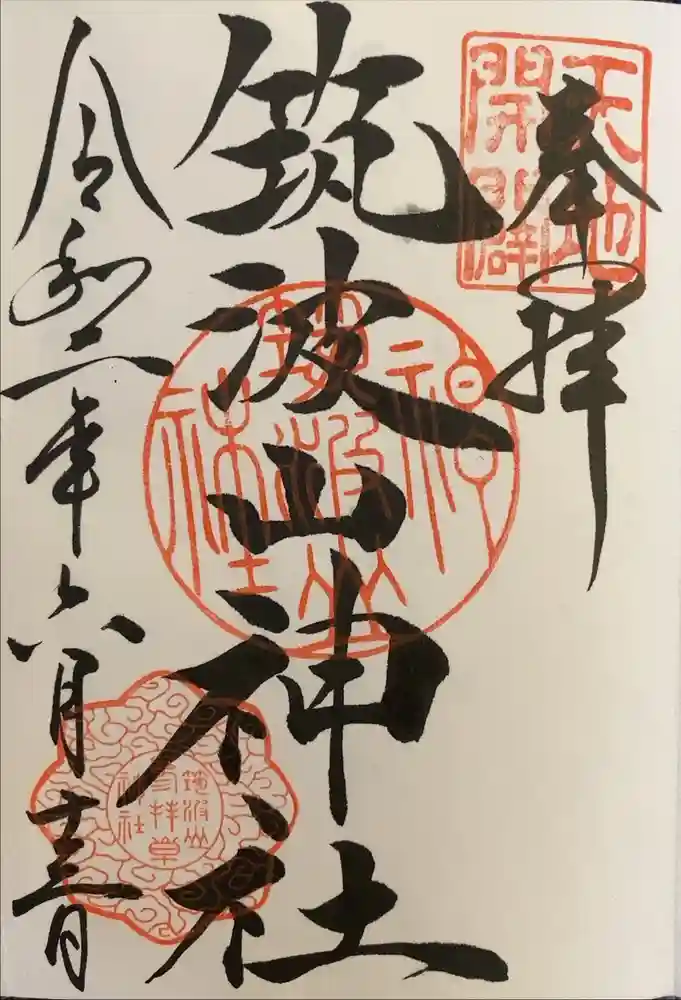 奉拝
天地
開闢
筑波山神社
筑波山
神社
令和二年六月十三日
筑波山
参拝章
神社